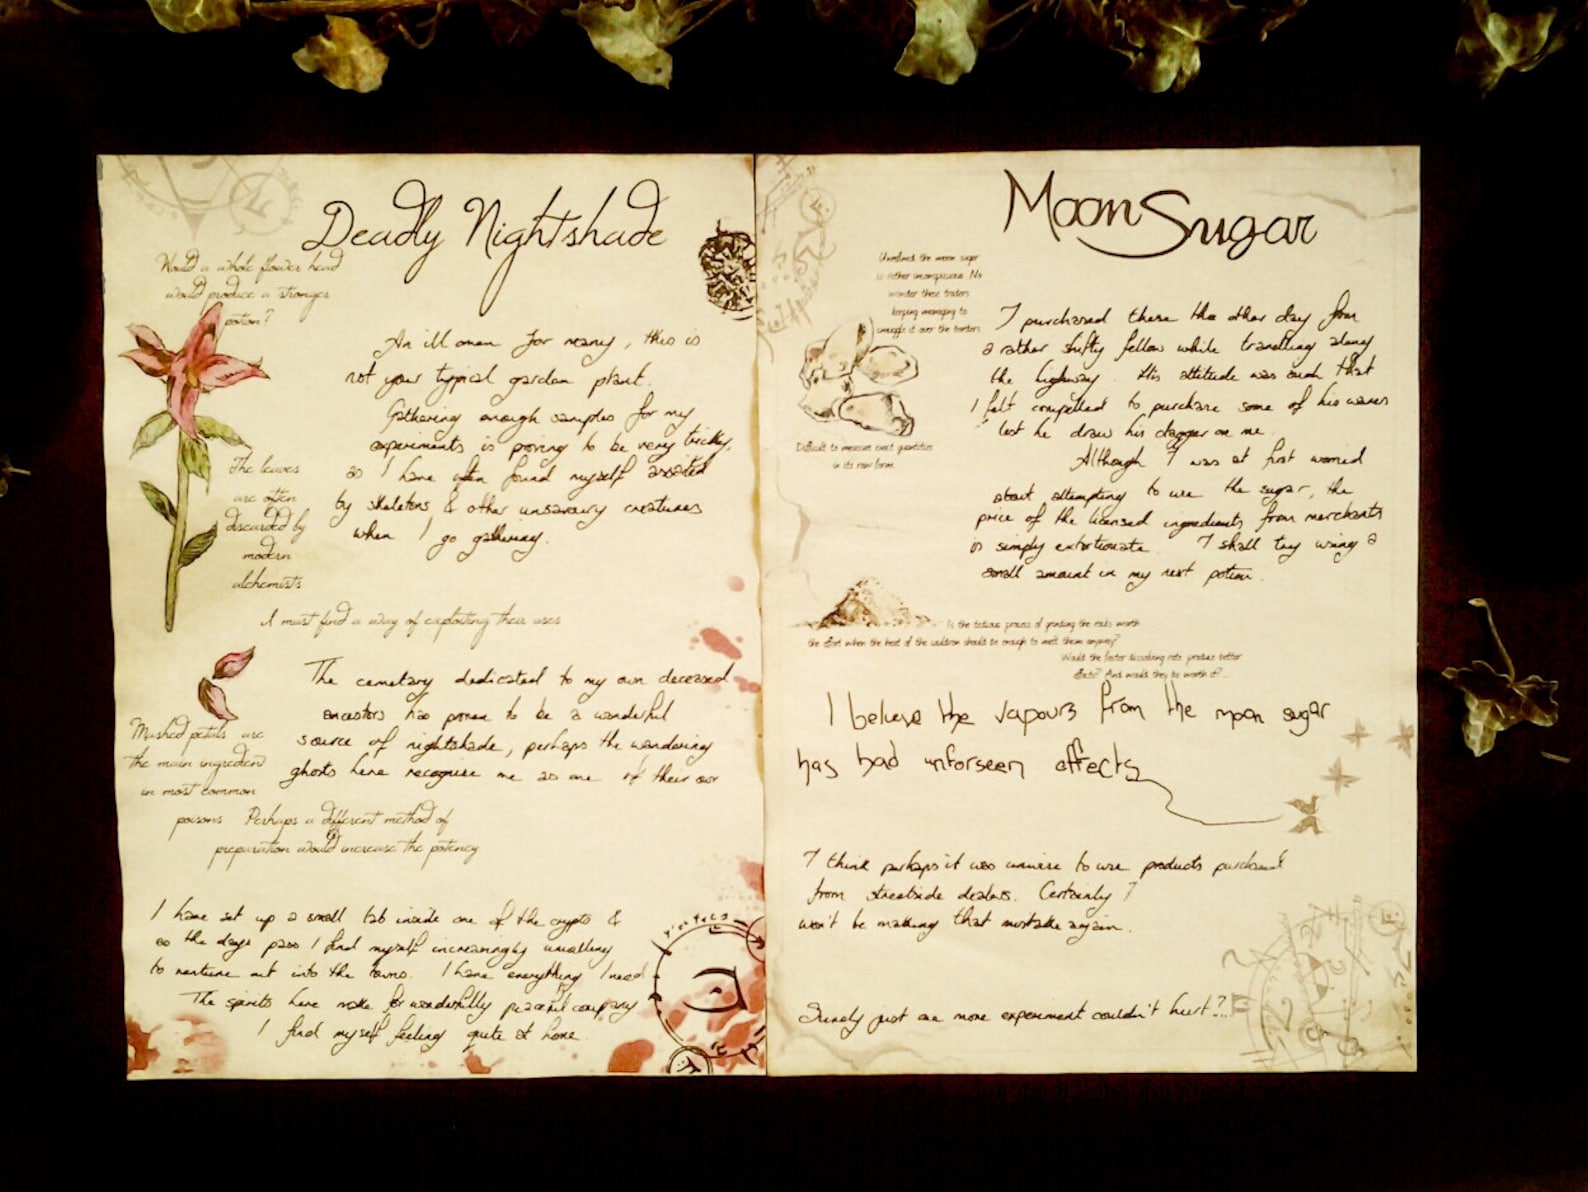 Deadly Nightshade
Would a whole flower head
would produce a stronger
potion?
An ill omen for many, this is
not your typical garden plant.
Gathering enough samples for my
experiments is proving to be very tricky,
as I have often found myself assaulted
by skeletons & other unsavoury creatures
when I go gathering.
The leaves
are often
discarded by
modern
alchemists
I must find a way of exploiting their uses
The cemetary dedicated to my own deceased
ancestors has proven to be a wonderful
source of nightshade, perhaps the wandering
ghosts here recognise me as one of their own
Mushed petals are
the main ingredient
in most common
poisons Perhaps a different method of
preparation would increase the potency
I have set up a small lab inside one of the crypts &
as the days pass I find myself increasingly unwilling
to venture out into the towns. I have everything I need
The spirits here make for wonderfully peaceful company
I find myself feeling quite at home.
Moon Sugar
Unrefined the moon sugar
is rather inconspicuous. No
wonder these traders
keeping managing to
smuggle it over the borders
I purchased these the other day from
a rather shifty fellow while travelling along
the highway. His attitude was such that
I felt compelled to purchase some of his wares
lest he draw his dagger on me.
Difficult to measure exact quantities
in its raw form.
Although I was at first worried
about attempting to use the sugar, the
price of the licensed ingredients from merchants
is simply extortionate. I shall try using a
small amount in my next potion.
Is the tedious process of grinding the rocks worth
the effort when the heat of the cauldron should be enough to melt them anyway?
Would the faster dissolving rate produce better
effects? And would they be worth it?...
I believe the vapours from the moon sugar
has had unforseen effects
I think perhaps it was unwise to use products purchased
from streetside dealers. Certainly I
won't be making that mistake again.
Surely just one more experiment couldn't hurt?..